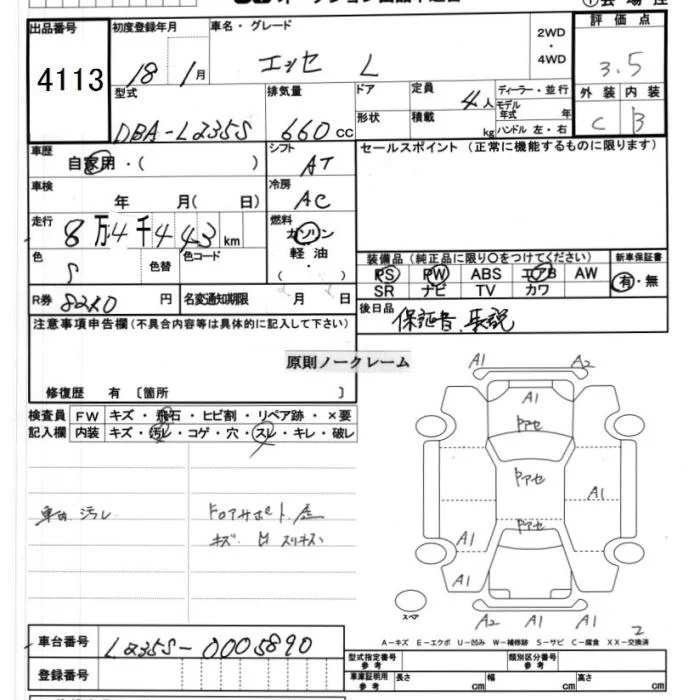 出品番号
4113
初度登録年月
18 1月
車名・グレード
エッセ L
2WD
・
4WD
評価点
3.5
型式
DBA-L235S
排気量
660cc
ドア
形状
定員
4人
積載
kg
ディーラー・並行
モデル
年式 年
ハンドル 左・右
外装 内装
C B
車歴
自家用・( )
シフト
AT
セールスポイント (正常に機能するものに限ります)
車検
年 月( 日)
冷房
AC
走行
8万4千443km
燃料
ガソリン
軽油
( ・ )
色
S
色替
色コード
装備品 (純正品に限り〇をつけてください)
新車保証書
PS PW ABS エアB AW
SR ナビ TV カワ
有・無
R券 8210 円
名変通知期限 月 日
後日品
保証書、取説
注意事項申告欄(不具合内容等は具体的に記入して下さい)
原則ノークレーム
修復歴 有 〔箇所 〕
検査員
記入欄
FW キズ・飛石・ヒビ割・リペア跡・×要
内装 キズ・汚レ・コゲ・穴・スレ・キレ・破レ
車内 汚レ
キズ
A1 A2
A1
アセ
アセ
A1
アセ
A1
A1
スペア
A2 A1 A1
2
A-キズ E-エクボ U-凹み W-補修跡 S-サビ C-腐食 XX-交換済
車台番号
L235S-0005890
登録番号
型式指定番号
参考
類別区分番号
参考
車庫証明用
参考
長さ cm
幅 cm
高さ cm